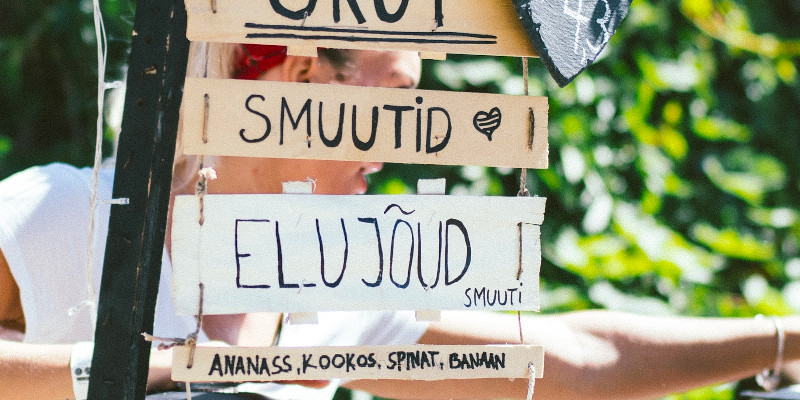 SMUUTiD
ELUJÕUD
SMUUTi
ANANASS, KOOKOS, SPINAT, BANAAN